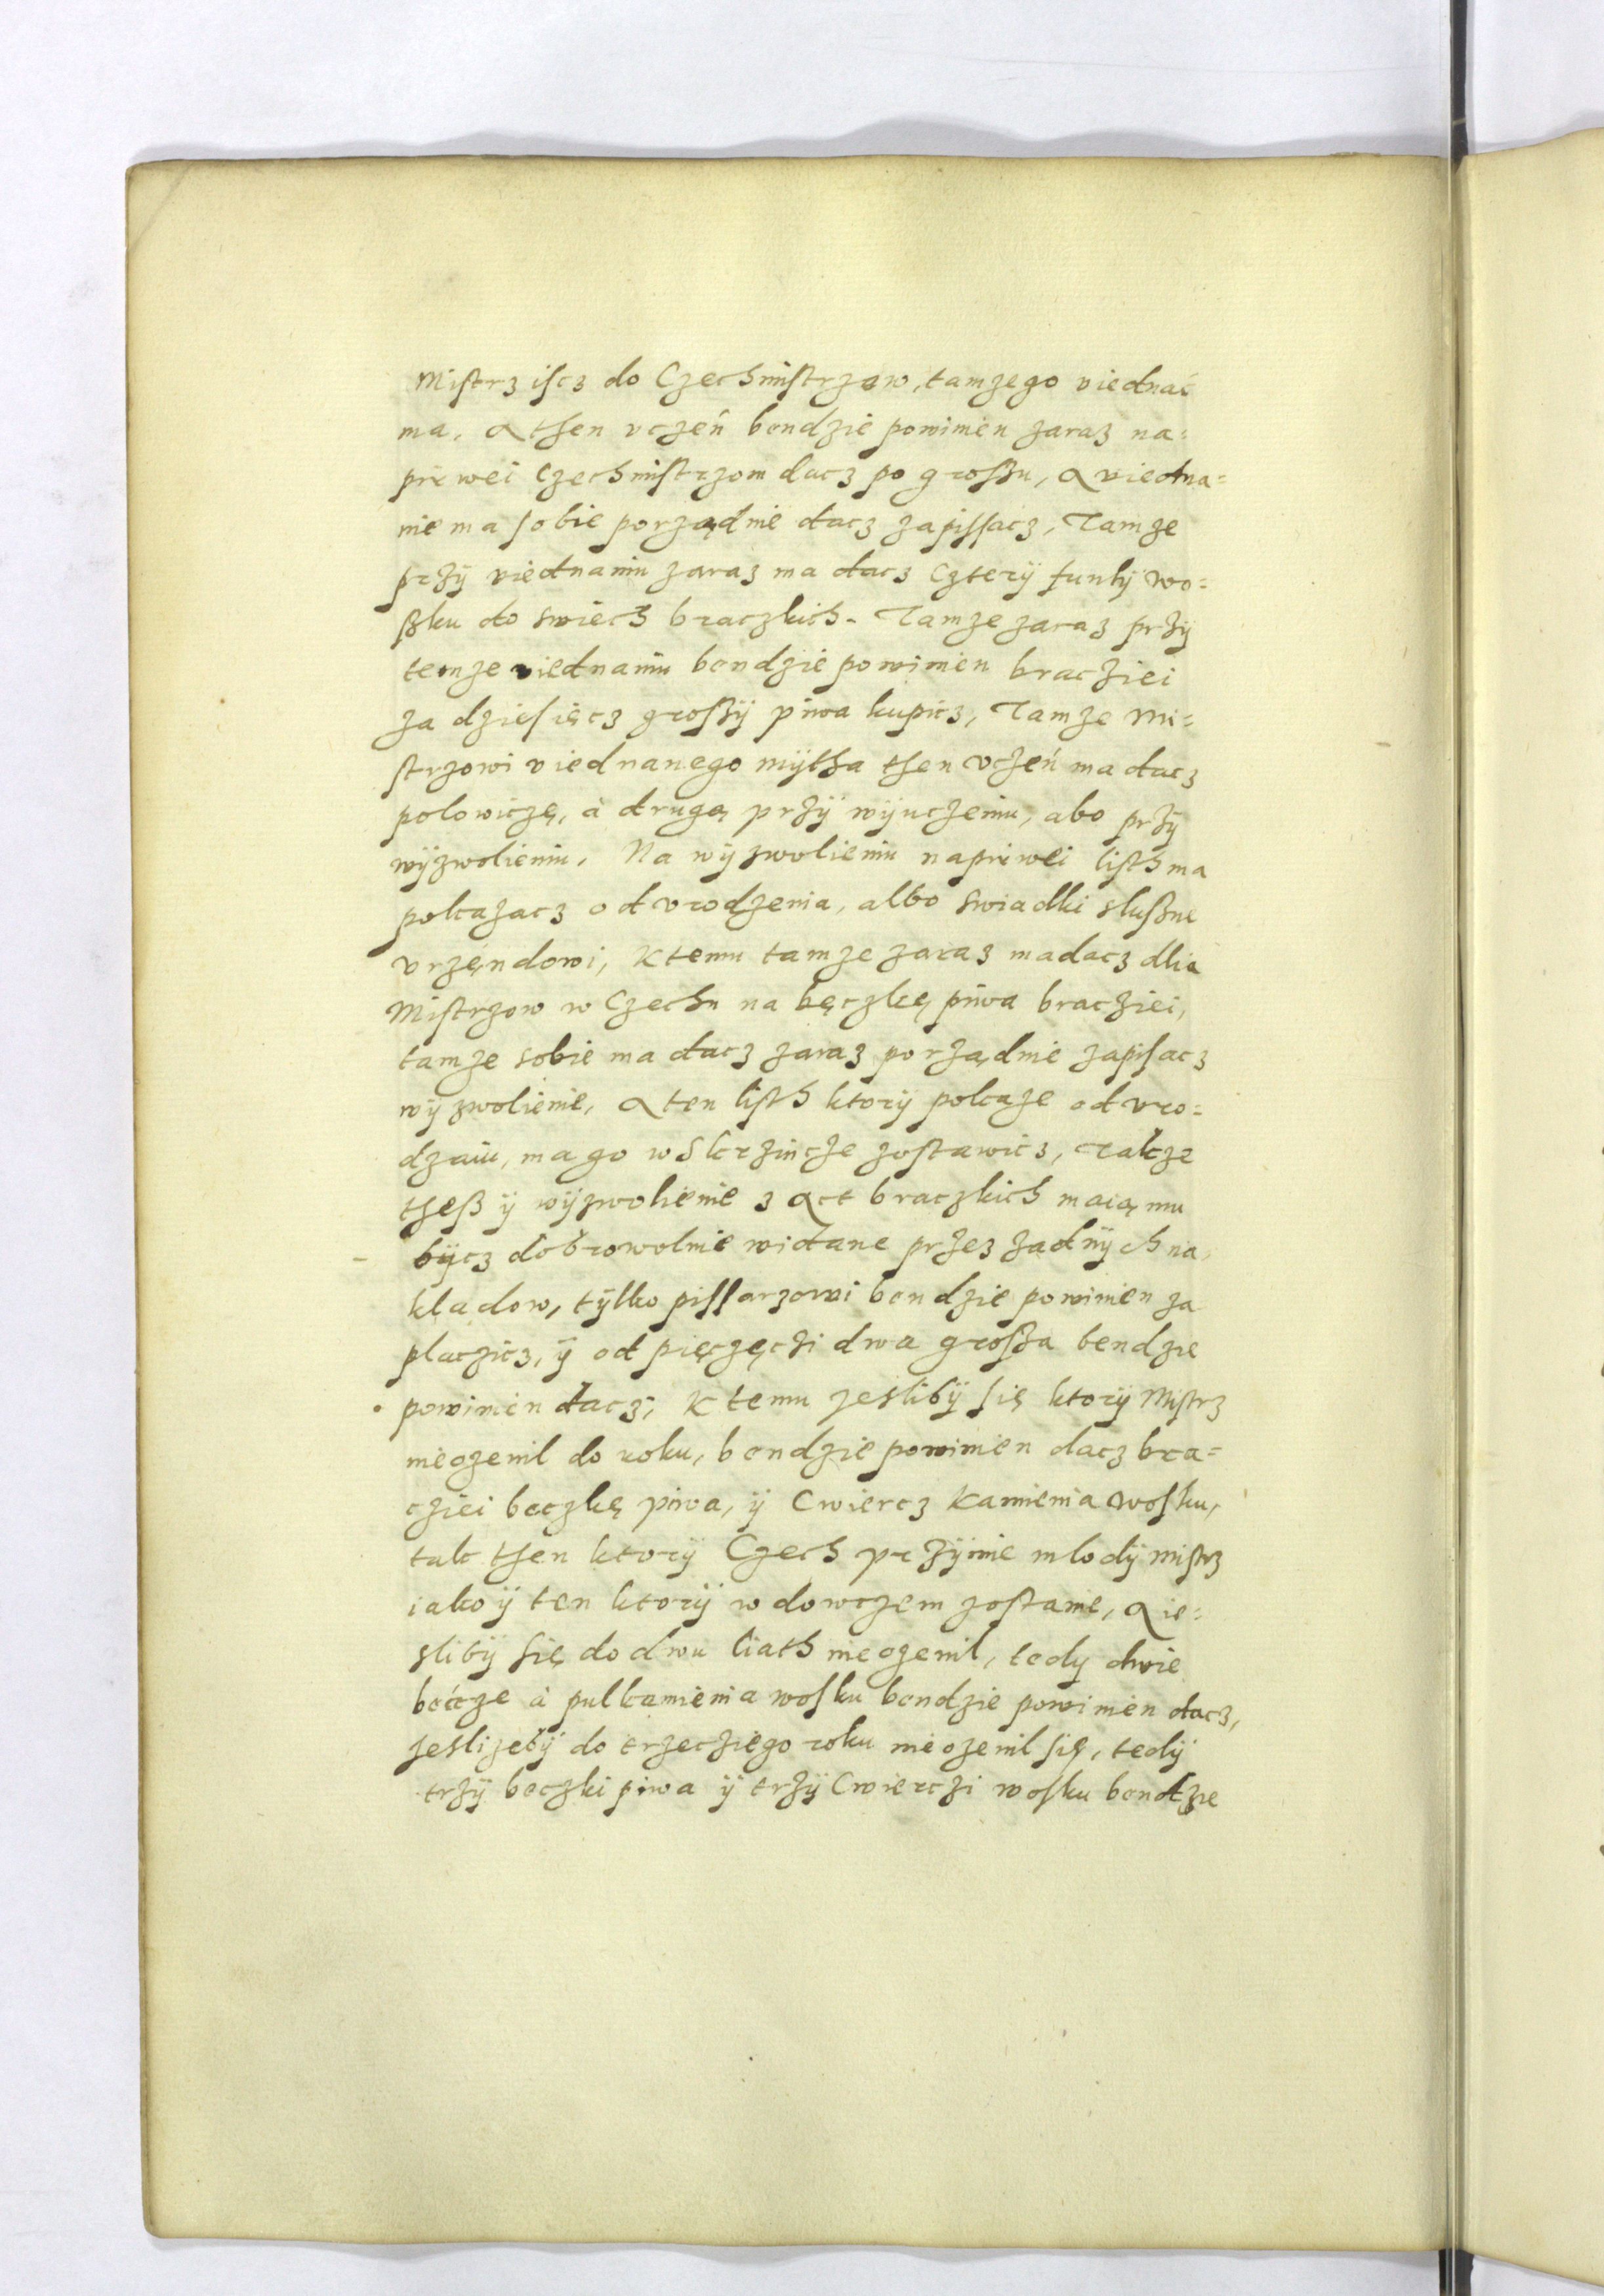 Mistrz iscz do Czechmistrzow, tamzego viednać
ma. A then vczeń bendzie powinien zaraz na=
pirwei Czechmistrzom dacz po grossu, A viedna=
nie ma sobie porządnie dacz zapissacz, Tamze
przÿ viednaniu zaraz ma dacz Czterÿ funtÿ wo=
sku do swiech braczkich. Tamze zaraz przÿ
temze viednaniu bendzie powinien bracziei
za dziesięcz grossÿ piwa kupicz, Tamze Mi=
strzowi viednanego mÿtha then vczeń ma dacz
polowiczę, à drugę przÿ wÿuczeniu, abo przÿ
wÿzwolieniu. Na wÿzwolieniu napirwei listh ma
pokazacz od vrodzenia, albo swiadki slussne
vrzęndowi, K temu tamze zaraz ma dacz dlia
Mistrzow w Czechu na bęczkę piwa bracziei,
tamze sobie ma dacz zaraz porządnie zapisacz
wÿzwolienie, A ten listh ktorÿ pokaze od vro=
dzaiu, ma go w Skrzincze zostawicz, Takze
thess ÿ wÿzwolienie z Act braczkich maią mu
bÿcz dobrowolnie widane przez zadnÿch na
kladow, tÿlko pissarzowi bendzie powinien za
placzicz, ÿ od pięczęczi dwa grossa bendzie
powinien dacz, K temu jeslibÿ się ktorÿ Mistrz
nieozenil do roku, bendzie powinien dacz bra=
cziei beczkę piwa, ÿ Cwiercz Kamienia wosku,
tak then ktorÿ Czech przÿmie mlodÿ mistrz
iako ÿ ten ktorÿ wdowczem zostanie, A ie=
slibÿ się do dwu liath nieozenil, tedy dwie
becze à pulkamienia wosku bendzie powinien dacz,
Jeslizebÿ do trzecziego roku nieozenil się, tedÿ
trzÿ beczki piwa ÿ trzÿ Cwierczi wosku bendzie